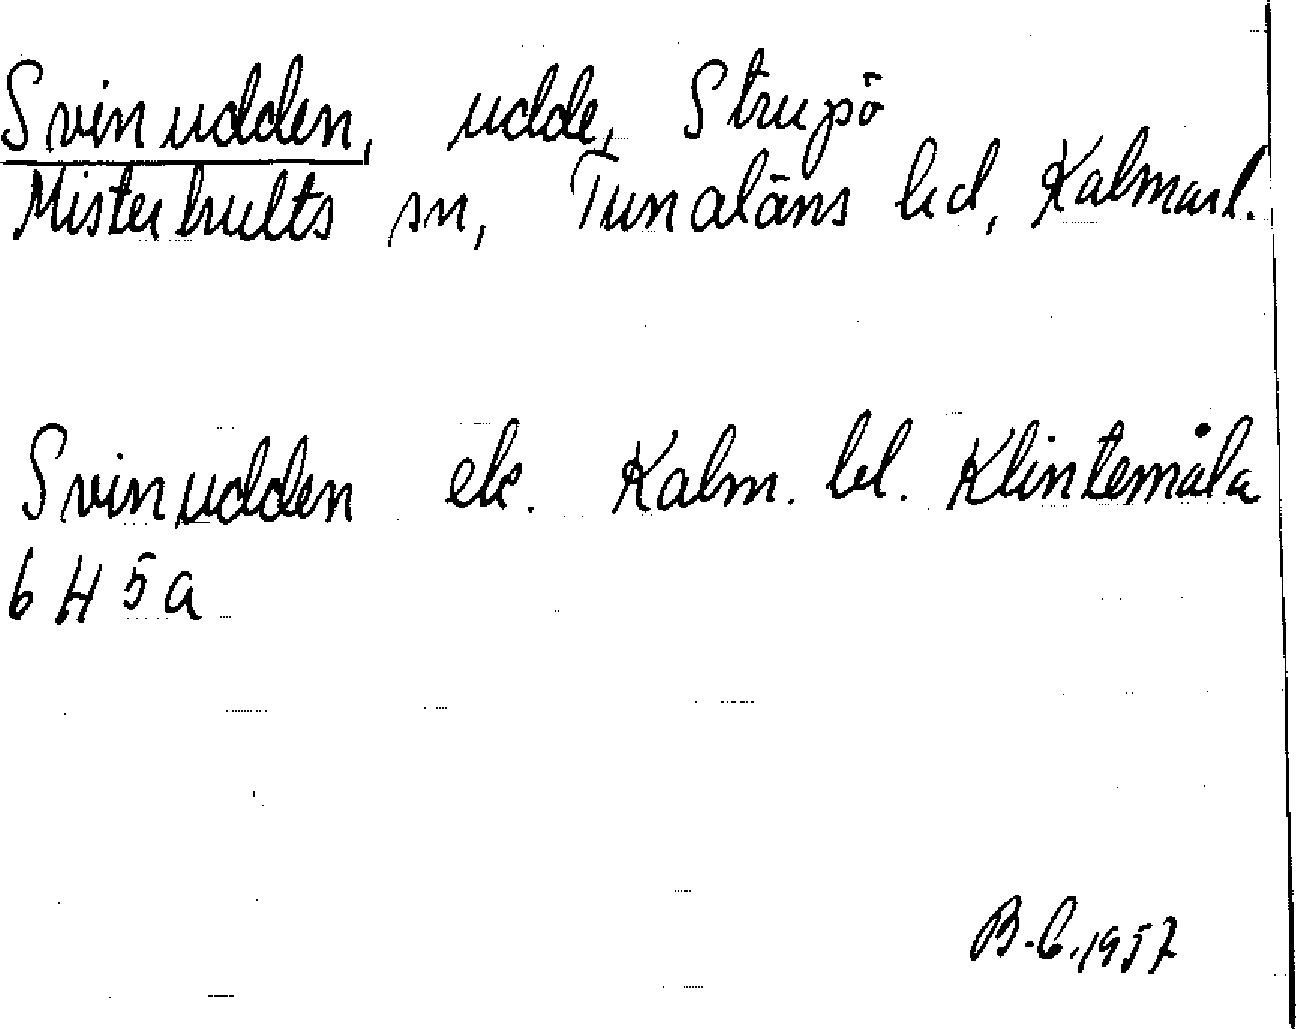 Svinudden, udde, Strupö
Misterhults sn, Tunaläns hd, Kalmarl.
Svinudden ek. Kalm. bl. Klintemåla
6 H 5 a
B. C. 1957